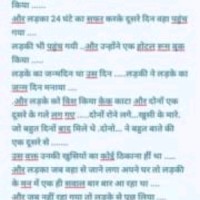 किया ......
और लड़का 24 घंटे का सफर करके दुसरे दिन वहा पहुंच
गया ....
लड़की भी पहुंच गयी ..और उन्होंने एक होटल रूम बुक
किया ......
लड़के का जन्मदिन था उस दिन .....लड़की ने लड़के का
जन्म दिन मनाया ....
और लड़के को विस किया केक काटा और दोनों एक
दुसरे के गले लग गए ......दोनों रोने लगे...खुशी के मारे.
जो बहुत दिनों बाद मिले थे .दोनो... ने बहुत बाते की
एक दुसरे से .......
उस वक्त उनकी खुसियों का कोई ठिकाना हीं था .....
और लड़का जब वहा से जाने लगा अपने घर तो लड़की
के मन में एक ही सवाल बार बार आ रहा था ....
और जब नहीं रहा गया तो लड़के से पूछ लिया ....